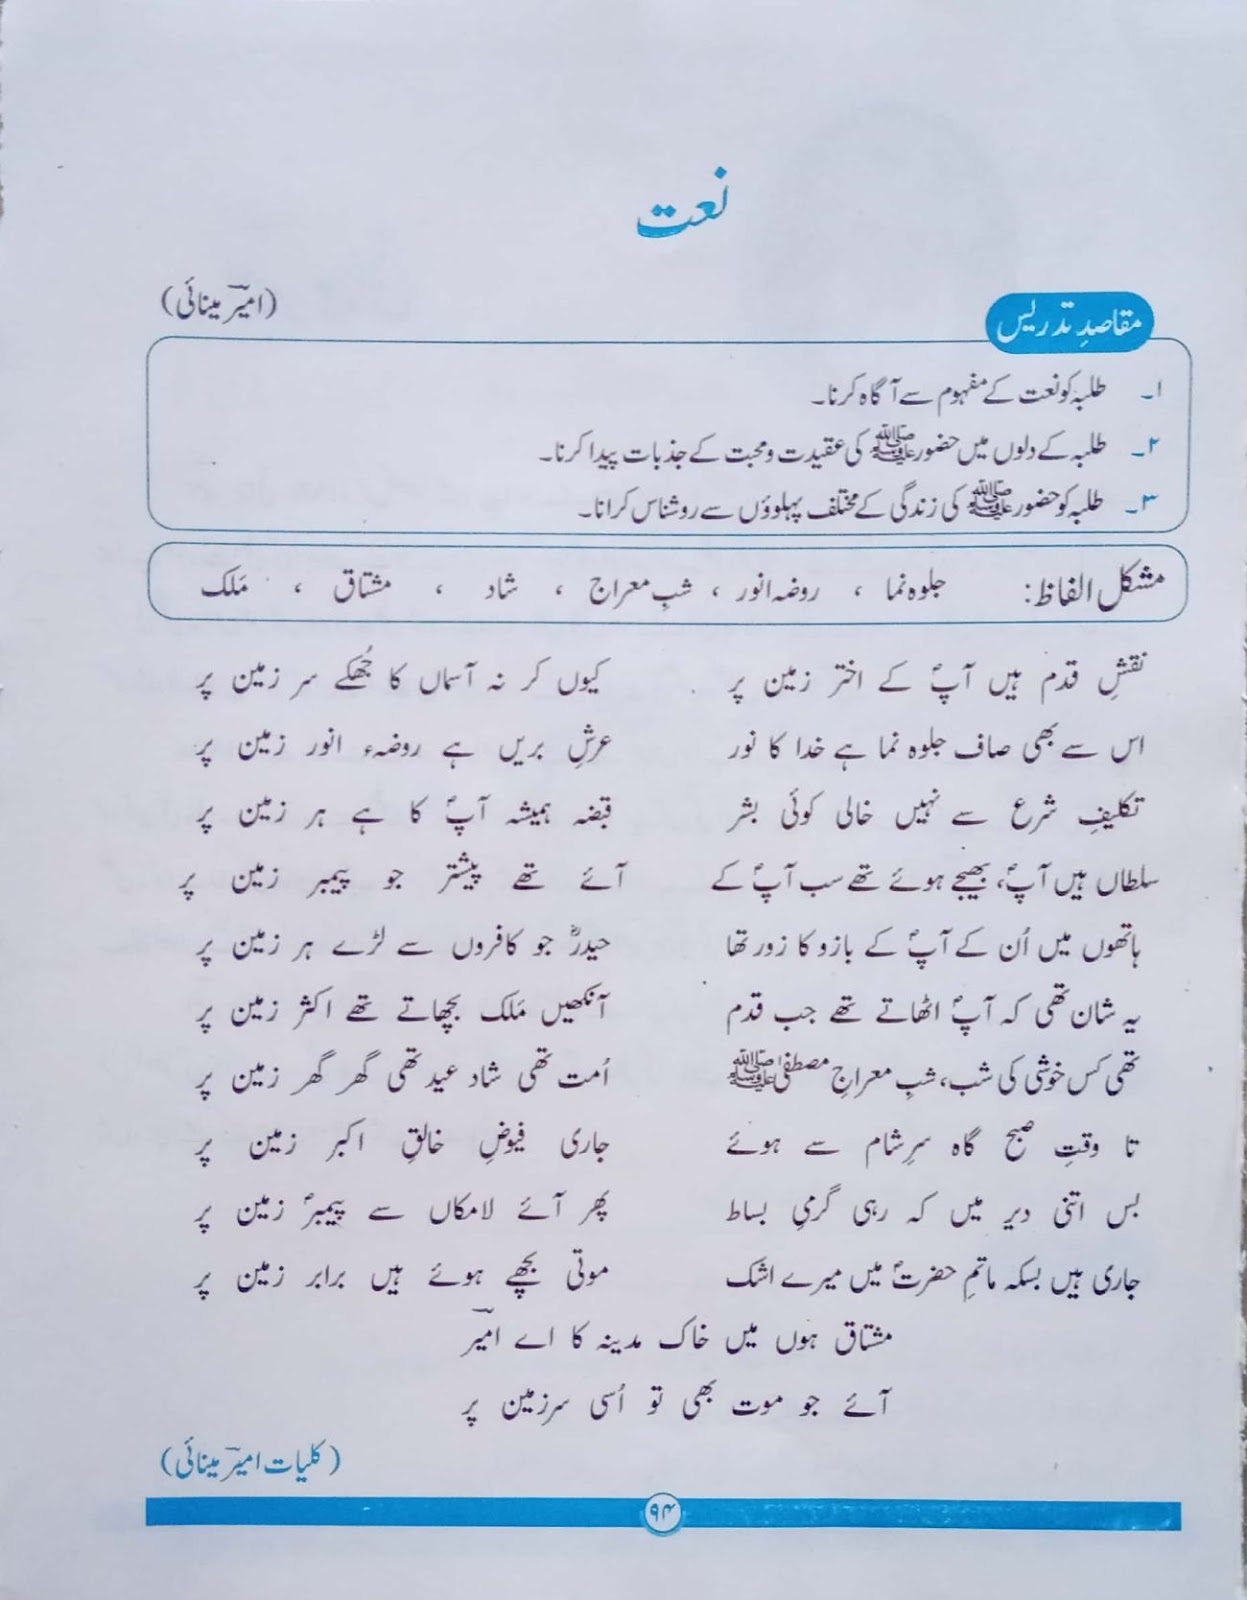 نعت
(امیرؔ مینائی)
مقاصدِ تدریس
۱۔ طلبہ کو نعت کے مفہوم سے آگاہ کرنا۔
۲۔ طلبہ کے دلوں میں حضورﷺ کی عقیدت و محبت کے جذبات پیدا کرنا۔
۳۔ طلبہ کو حضورﷺ کی زندگی کے مختلف پہلوؤں سے روشناس کرانا۔
مشکل الفاظ: جلوہ نما ، روضہ انور ، شبِ معراج ، شاد ، مشتاق ، مَلک
نقشِ قدم ہیں آپؐ کے اختر زمین پر کیوں کر نہ آسماں کا جُھکے سر زمین پر
اس سے بھی صاف جلوہ نما ہے خدا کا نور عرشِ بریں ہے روضہء انور زمین پر
تکلیفِ شرع سے نہیں خالی کوئی بشر قبضہ ہمیشہ آپؐ کا ہے ہر زمین پر
سلطاں ہیں آپؐ، بھیجے ہوئے تھے سب آپؐ کے آئے تھے پیشتر جو پیمبر زمین پر
ہاتھوں میں اُن کے آپؐ کے بازو کا زور تھا حیدرؓ جو کافروں سے لڑے ہر زمین پر
یہ شان تھی کہ آپؐ اٹھاتے تھے جب قدم آنکھیں مَلک بچھاتے تھے اکثر زمین پر
تھی کس خوشی کی شب، شبِ معراجِ مصطفیٰﷺ اُمت تھی شاد عید تھی گھر گھر زمین پر
تا وقتِ صبح گاہ سرِشام سے ہوئے جاری فیوضِ خالقِ اکبر زمین پر
بس اتنی دیر میں کہ رہی گرمیِ بساط پھر آئے لامکاں سے پیمبرؐ زمین پر
جاری ہیں بسکہ ماتمِ حضرتؐ میں میرے اشک موتی بچھے ہوئے ہیں برابر زمین پر
مشتاق ہوں میں خاک مدینہ کا اے امیرؔ
آئے جو موت بھی تو اُسی سرزمین پر
(کلیات امیرؔ مینائی)
۹۴